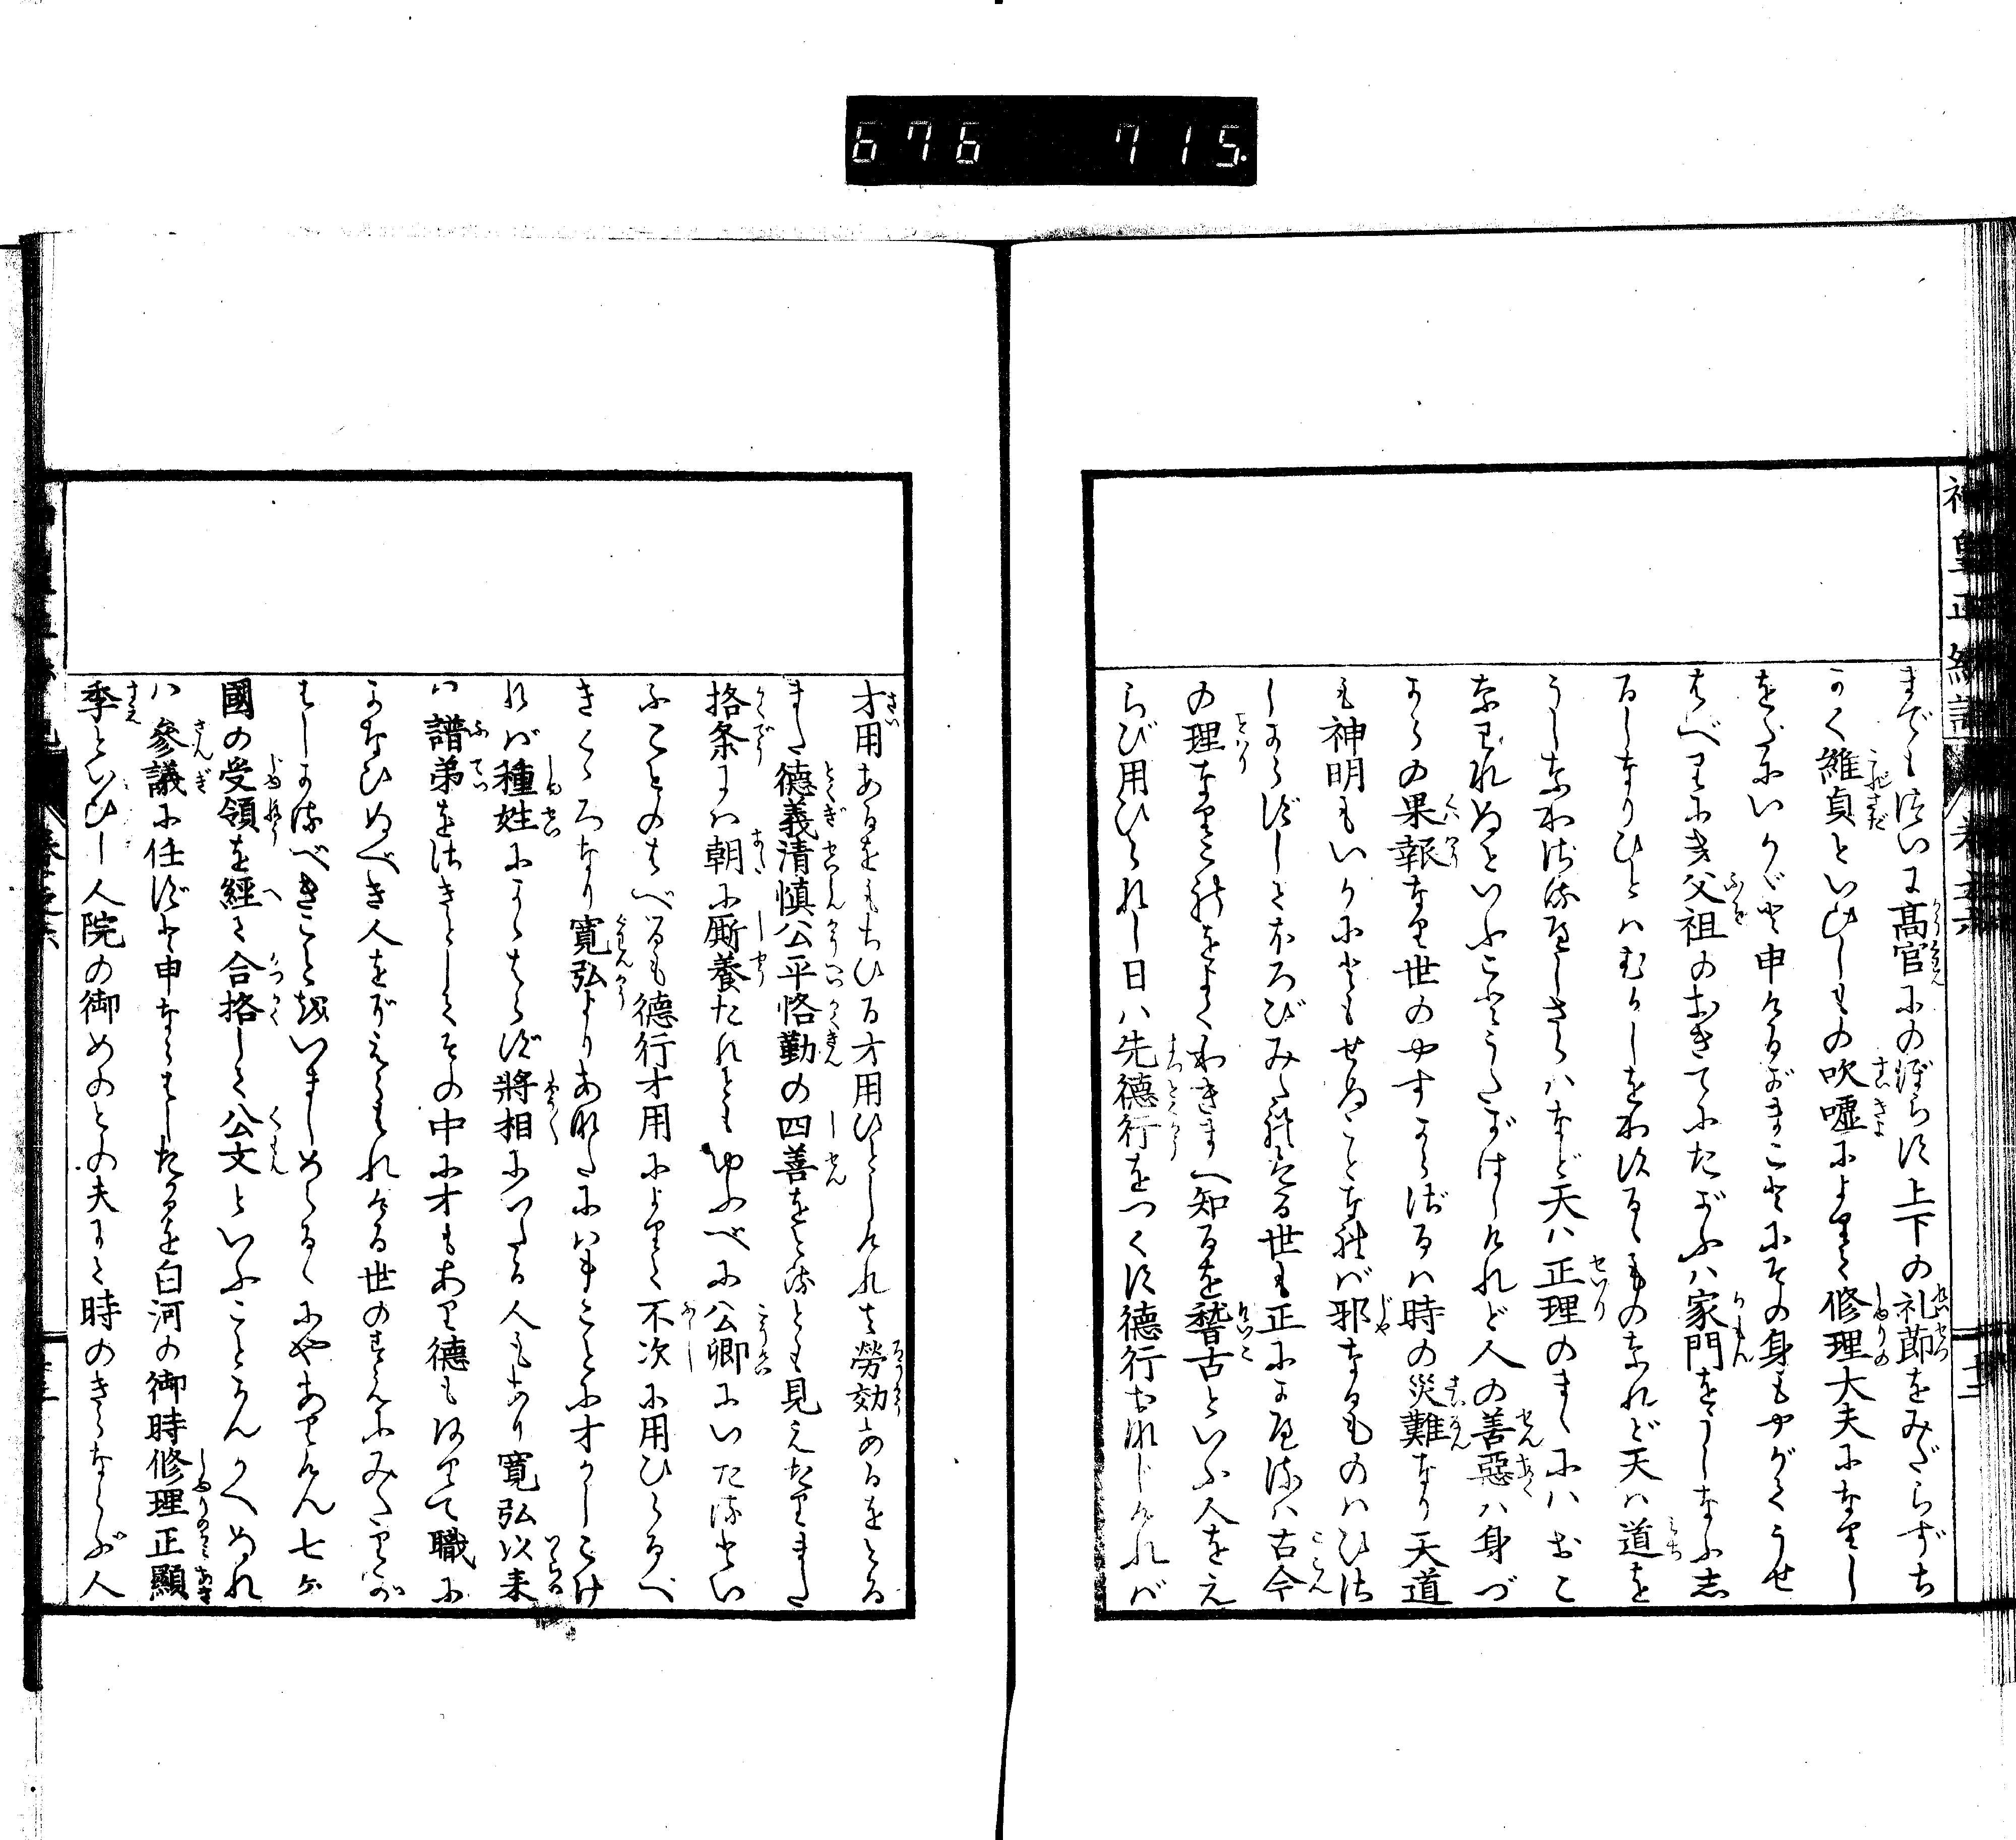 神皇正統記 巻之六
までもつひに高官にのぼらず上下の礼節をみだらずち
かく維貞といひしもの吹嘘によりて修理大夫になりし
をだにいかゞと申けるがまことにその身もやがてうせ
はべりにき父祖のおきてにたがふハ家門をうしなふ志
るしなりひとハむかしをわするゝものなれど天ハ道を
うしなわざるべしさらハなど天ハ正理のまゝにハおこ
なはれぬといふことうたがはしけれど人の善惡ハ身づ
からの果報なり世のやすからざるハ時の災難なり天道
も神明もいかにともせぬことなれバ邪なるものハひさ
しからずしてほろびみだれたる世も正にかへるハ古今
の理なりこれをよくわきまへ知るを稽古といふ人をえ
らび用ひられし日ハ先德行をつくす德行おなじけれバ
才用あるをもちひる才用ひとしけれは勞効あるをとる
また德義清慎公平恪勤の四善をとるとも見えたりまた
格条にハ朝に廝養たれどもゆふべに公卿にいたるとい
ふことのはべるも德行才用によりて不次に用ひらるべ
きこゝろなり寛弘よりあなたにハまことに才かしこけ
れバ種姓にかゝはらず將相にいたる人もあり寛弘以来
ハ譜弟をさきとしてその中に才もあり德もありて職に
かなひぬべき人をぞえらまれける世のすゑにみだりが
はしかるべきことをいましめらるゝにやありけん七ケ
國の受領を經て合格して公文といふことかんがへぬれ
ハ參議に任ずと申ならはしたるを白河の御時修理正顯
季といひし人院の御めのとの夫にて時のきらならぶ人
676 715